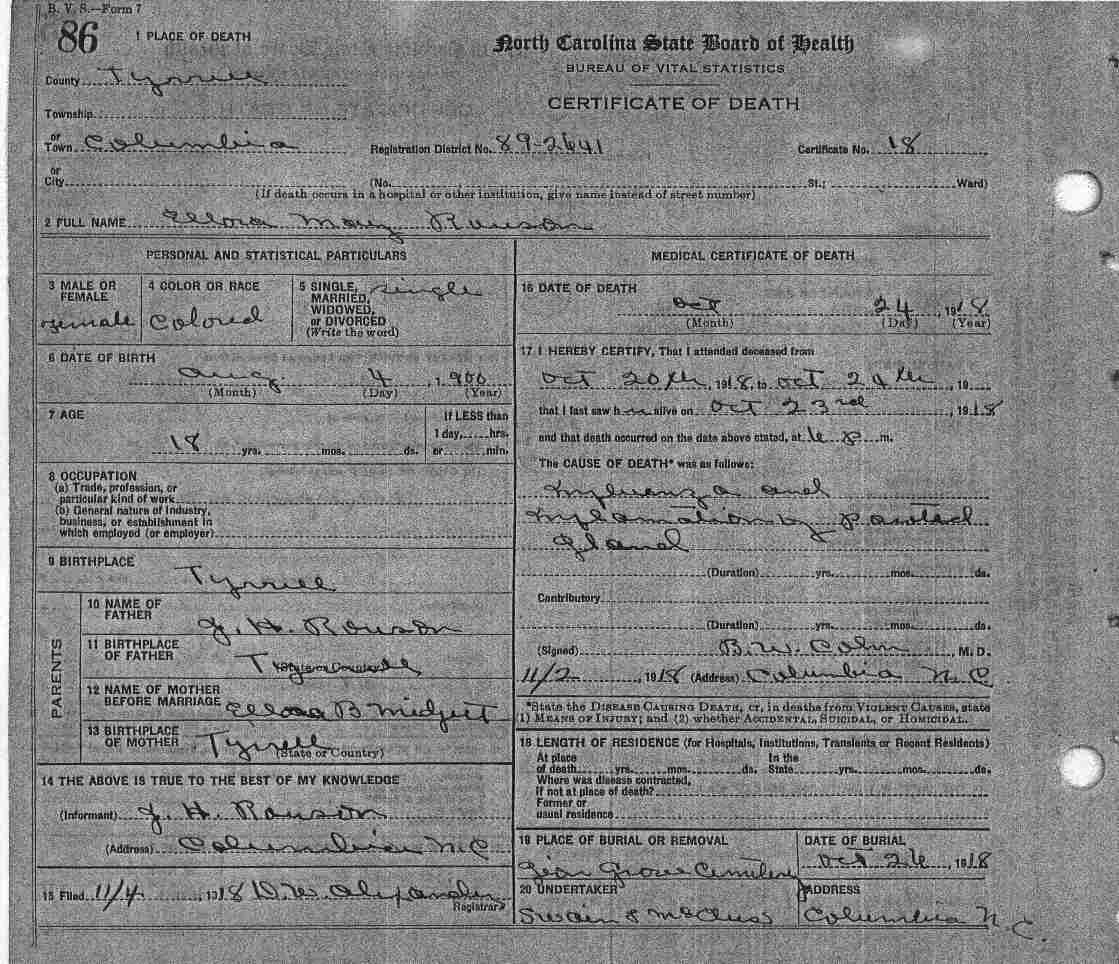 B. V. S.—Form 7
86
1 PLACE OF DEATH
County Tyrrell
Township
or Town Columbia
or City
North Carolina State Board of Health
BUREAU OF VITAL STATISTICS
CERTIFICATE OF DEATH
Registration District No. 89-2641 Certificate No. 18
(No. St.; Ward)
(If death occurs in a hospital or other institution, give name instead of street number)
2 FULL NAME Ellora May Rouson
PERSONAL AND STATISTICAL PARTICULARS
3 MALE OR FEMALE
Female
4 COLOR OR RACE
Colored
5 SINGLE, MARRIED, WIDOWED, or DIVORCED
(Write the word)
Single
6 DATE OF BIRTH
Aug 4, 1900
(Month) (Day) (Year)
7 AGE
18 yrs. mos. ds.
If LESS than
1 day, hrs.
or min.
8 OCCUPATION
(a) Trade, profession, or
particular kind of work
(b) General nature of industry,
business, or establishment in
which employed (or employer)
9 BIRTHPLACE
Tyrrell
PARENTS
10 NAME OF FATHER
J. H. Rouson
11 BIRTHPLACE OF FATHER
12 NAME OF MOTHER BEFORE MARRIAGE
Ellora B Midgett
13 BIRTHPLACE OF MOTHER
Tyrrell
(State or Country)
14 THE ABOVE IS TRUE TO THE BEST OF MY KNOWLEDGE
(Informant) J. H. Rouson
(Address) Columbia N.C
15 Filed 11/4, 1918 D. W. Alexander
Registrar
MEDICAL CERTIFICATE OF DEATH
16 DATE OF DEATH
Oct 24, 1918
(Month) (Day) (Year)
17 I HEREBY CERTIFY, That I attended deceased from
Oct 20th, 1918, to Oct 24th, 19
that I last saw h alive on Oct 23rd, 1918
and that death occurred on the date above stated, at 6 P m.
The CAUSE OF DEATH* was as follows:
Influenza and
Inflamation by Parotid
Gland
(Duration) yrs. mos. ds.
Contributory
(Duration) yrs. mos. ds.
(Signed) B. W. Cohn, M. D.
11/2, 1918 (Address) Columbia N.C.
*State the DISEASE CAUSING DEATH, or, in deaths from VIOLENT CAUSES, state
(1) MEANS OF INJURY; and (2) whether ACCIDENTAL, SUICIDAL, or HOMICIDAL.
18 LENGTH OF RESIDENCE (for Hospitals, Institutions, Transients or Recent Residents)
At place of death yrs. mos. ds. In the State yrs. mos. ds.
Where was disease contracted,
If not at place of death?
Former or
usual residence
19 PLACE OF BURIAL OR REMOVAL
Zion Grove Cemetery
DATE OF BURIAL
Oct 26 1918
20 UNDERTAKER
Swain & McClees
ADDRESS
Columbia N.C.